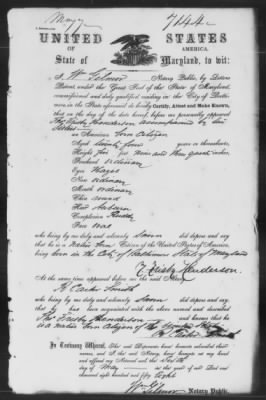 May 7
7144
UNITED STATES
OF AMERICA.
State of Maryland, to wit:
I, Wm Gilmor Notary Public, by Letters
Patent, under the Great Seal of the State of Maryland,
commissioned and duly qualified residing in the City of Balti-
more, in the State aforesaid do hereby Certify, Attest and Make Known,
that on the day of the date hereof, before me personally appeared
Henderson accompanied by
an American born citizen
Aged twenty four years or thereabouts,
Height five feet nine and three quarter inches,
Forehead ordinary
Eyes Hazel
Nose ordinary
Mouth ordinary
Chin round
Hair Auburn
Complexion
Face oval
who being by me duly and solemnly Sworn did depose and say
that he is a native born Citizen of the United States of America,
being born in the City of Baltimore State of Maryland
Frisby Henderson.
At the same time appeared before me the said Notary
H. Smith
who being by me duly and solemnly Sworn did depose and say
that he has been acquainted with the above named and described
Frisby Henderson and knows that he
is a native born Citizen of the United States
In Testimony Whereof, The said Deponents have hereunto subscribed their
names, and I the said Notary, have hereunto set my hand
and affixed my Notarial seal this Sixth
day of May in the year of our Lord one
thousand eight hundred and fifty eight
Wm Gilmor Notary Public.